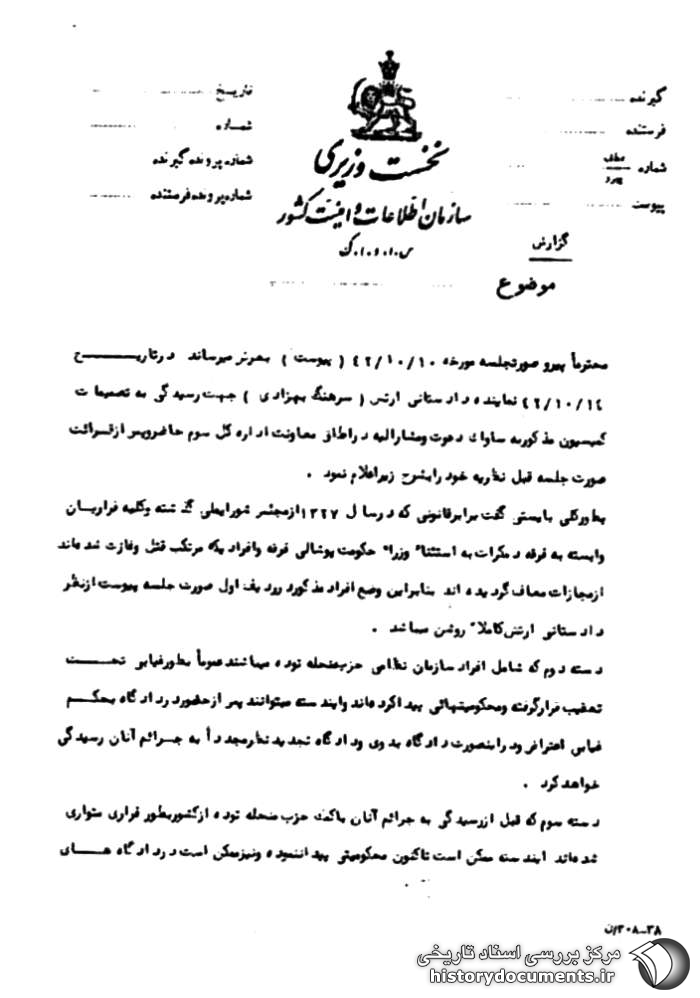 گیرنده
فرستنده
شماره عطف
پیرو
پیوست
تاریخ
شماره
شماره پرونده گیرنده
شماره پرونده فرستنده
نخست وزیری
سازمان اطلاعات و امنیت کشور
س.ا.و.ا.ک
گزارش
موضوع
محترماً پیرو صورتجلسه مورخه ۴۲/۱۰/۱۰ ( پیوست ) بعرض میرساند در تاریخ
۴۲/۱۰/۱۴ نماینده دادستانی ارتش ( سرهنگ بهزادی ) جهت رسیدگی به تصمیمات
کمیسیون مذکور به ساواک دعوت و مشارالیه در اطاق معاونت اداره کل سوم حاضر و پس از قرائت
صورت جلسه قبل نظریه خود را بشرح زیر اعلام نمود .
بطور کلی بایستی گفت برابر قانونی که در سال ۱۳۲۷ از مجلس شورایملی گذشته و کلیه فراریان
وابسته به فرقه دمکرات به استثناء وزراء حکومت پوشالی فرقه و افرادیکه مرتکب قتل و غارت شده‌اند
از مجازات معاف گردیده اند بنابراین وضع افراد مذکور در ردیف اول صورت جلسه پیوست از نظر
دادستانی ارتش کاملاً روشن میباشد .
دسته دوم که شامل افراد سازمان نظامی حزب منحله توده میباشند عموماً بطور غیابی تحت
تعقیب قرار گرفته و محکومیتهائی پیدا کرده‌اند و ایندسته میتوانند پس از حضور در دادگاه بحکم
غیابی اعتراض و در اینصورت دادگاه بدوی و دادگاه تجدید نظر مجدداً به جرائم آنان رسیدگی
خواهد کرد .
دسته سوم که قبل از رسیدگی به جرائم آنان باکمک حزب منحله توده از کشور بطور فراری متواری
شده‌اند ایندسته ممکن است تاکنون محکومیتی پیدا ننموده و نیز ممکن است در دادگاه های
۳۸-۲۰۸/ن
مرکز بررسی اسناد تاریخی
historydocuments.ir